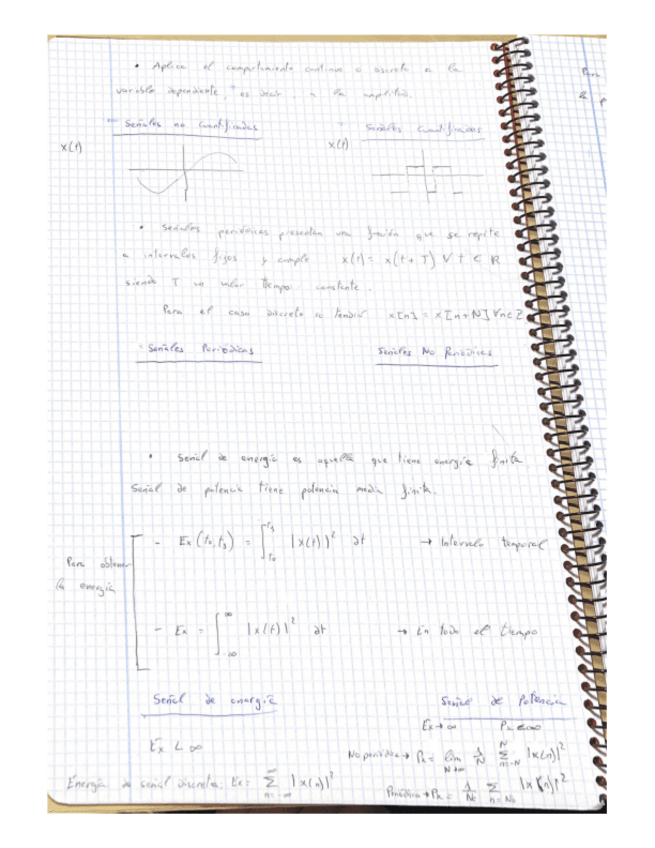 • Aplica el comportamiento continuo o discreto a la
variable dependiente, es decir, a la amplitud.
Señales no cuantificadas
Señales cuantificadas
x(t)
x(t)
• Señales periódicas presentan una función que se repite
a intervalos fijos y cumple x(t) = x(t+T) ∀ t ∈ R
siendo T un valor tiempo constante.
Para el caso discreto se tendrá x[n] = x[n+N] ∀n∈Z
Señales Periódicas
Señales No Periódicas
• Señal de energía es aquella que tiene energía finita
Señal de potencia tiene potencia media finita.
- Ex (t0, t1) = ∫_{t0}^{t1} |x(t)|² dt → Intervalo temporal
Para obtener
la energía
- Ex = ∫_{-∞}^{∞} |x(t)|² dt → En todo el tiempo
Señal de energía
Señal de Potencia
Ex → ∞
Ex < ∞
No periódica → Px = lim_{N→∞} 1/N Σ_{n=-N}^{N} |x(n)|²
Energía de señal discreta: Ex = Σ_{n=-∞}^{∞} |x(n)|²
Para
la p